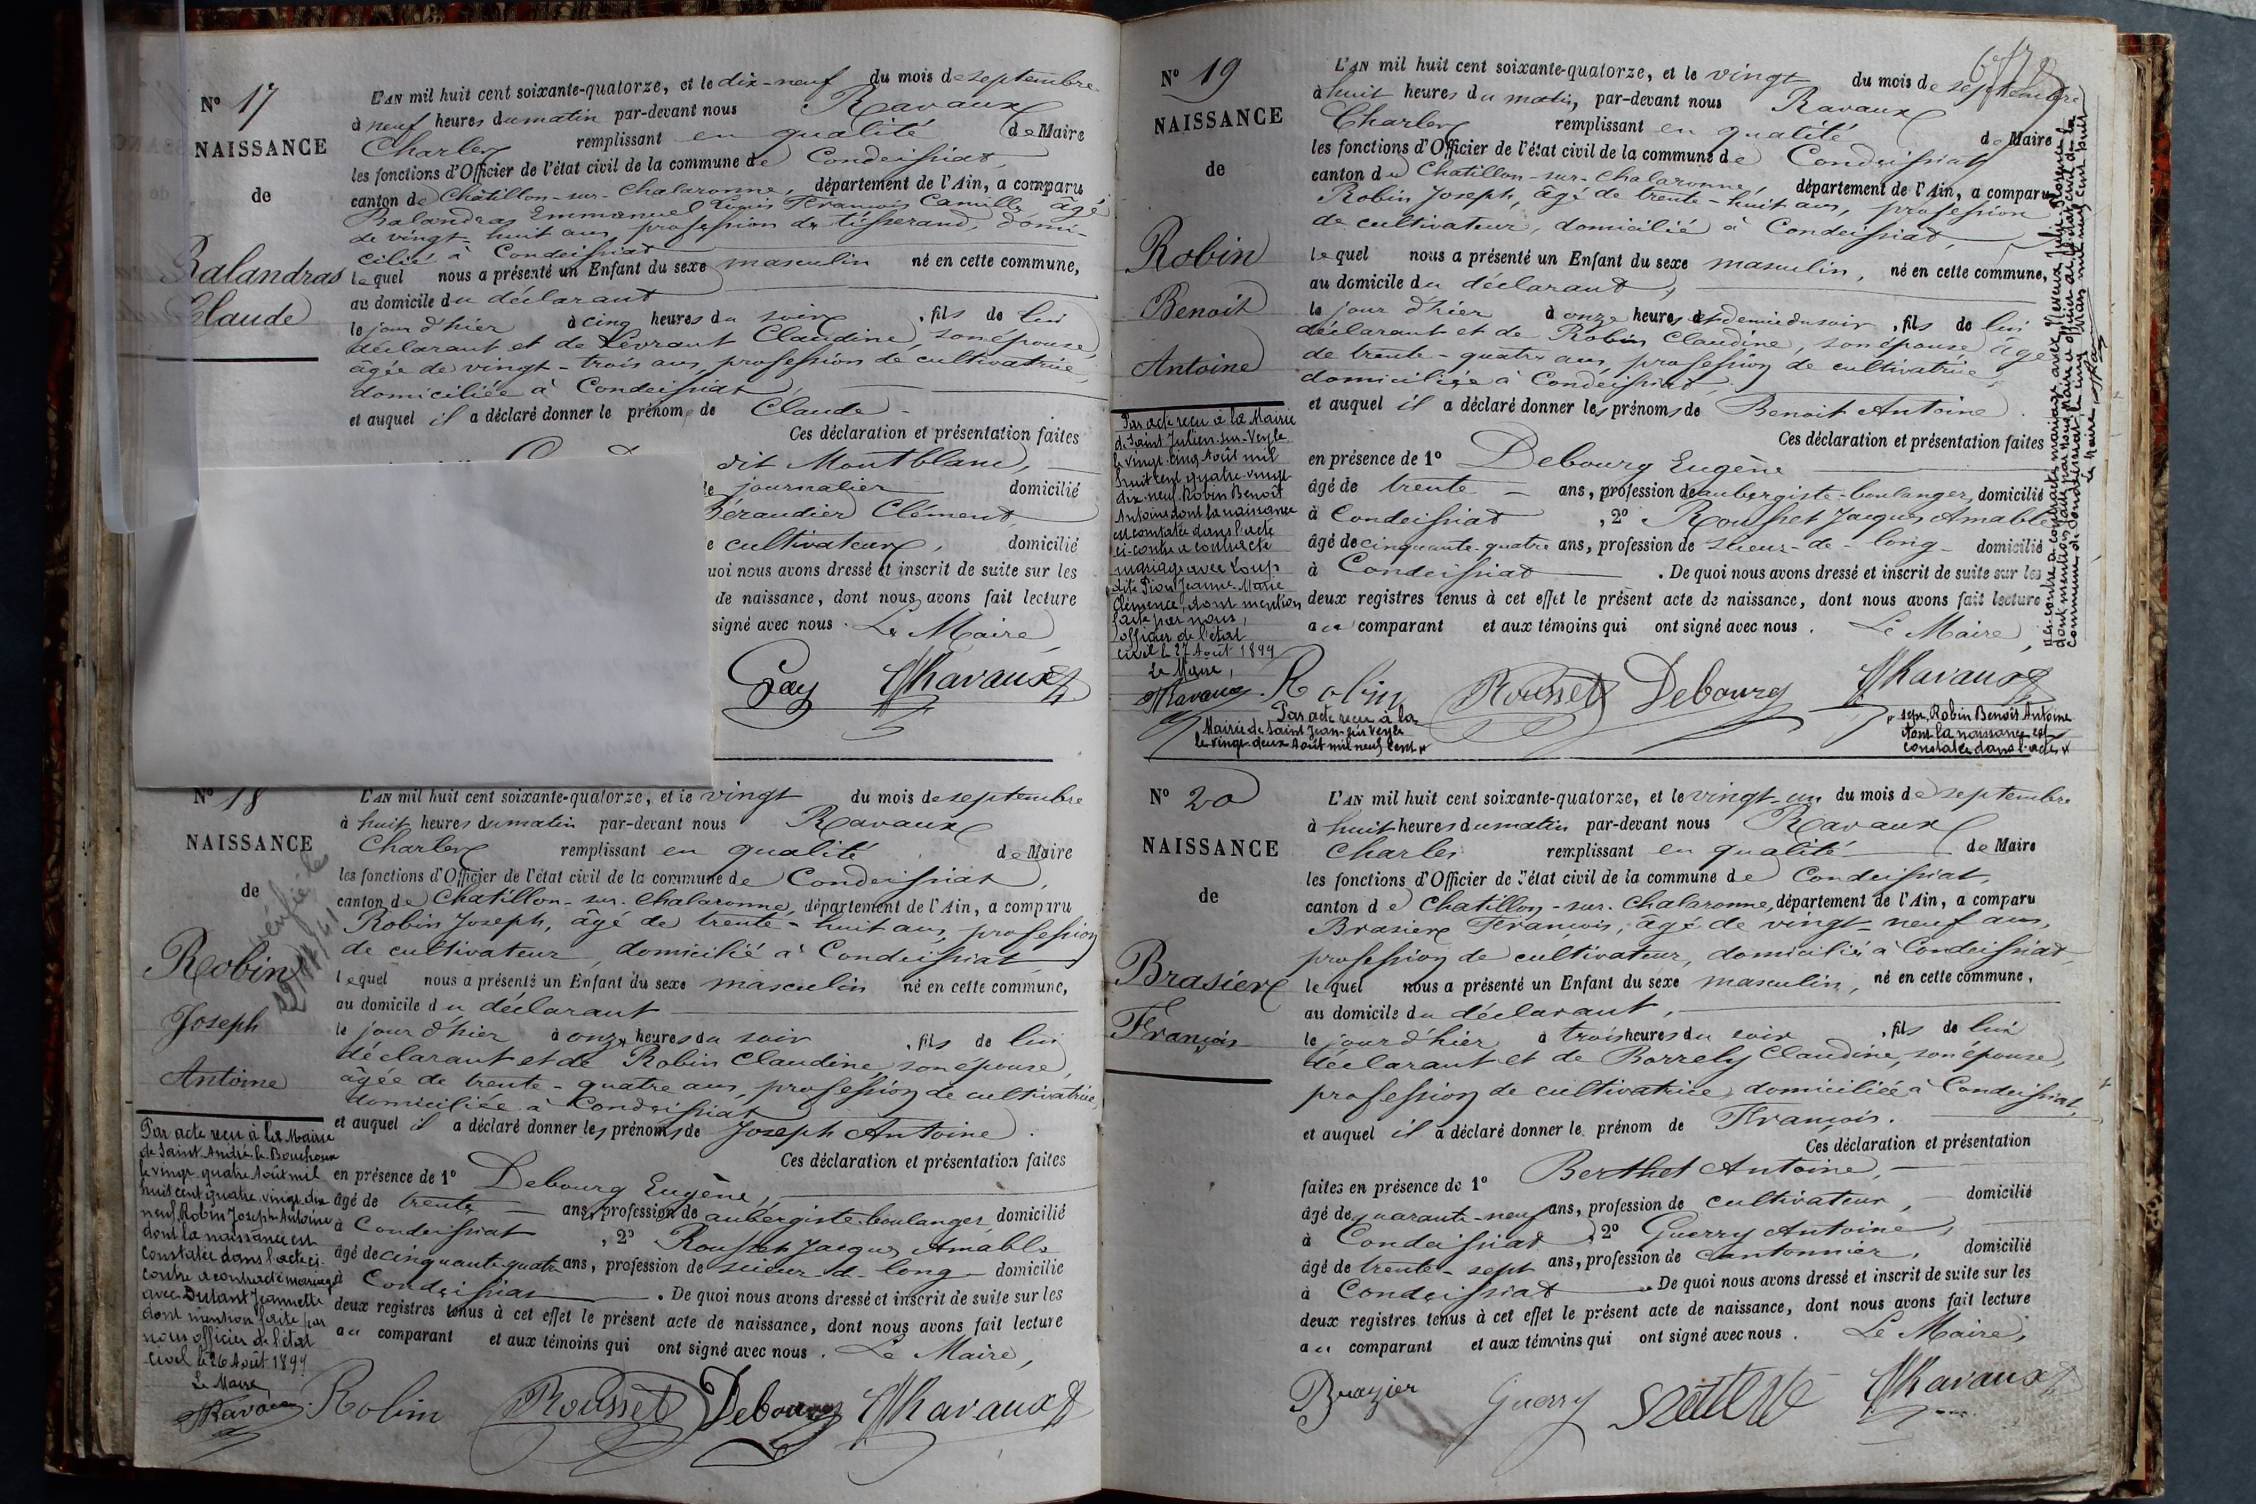 N° 17
NAISSANCE
de
Balandras
Claude
L'AN mil huit cent soixante-quatorze, et le dix-neuf du mois de septembre
à neuf heures du matin par-devant nous Ravaux
Charles remplissant en qualité de Maire
les fonctions d'Officier de l'état civil de la commune de Condeissiat,
canton de Châtillon-sur-Chalaronne, département de l'Ain, a comparu
Balandras Emmanuel Louis François Camille âgé
de vingt-huit ans, profession de tisserand, domi-
cilié à Condeissiat
lequel nous a présenté un Enfant du sexe masculin né en cette commune,
au domicile du déclarant
le jour d'hier à cinq heures du soir, fils de lui
déclarant et de Levraut Claudine, son épouse,
âgée de vingt-trois ans, profession de cultivatrice,
domiciliée à Condeissiat,
et auquel il a déclaré donner le prénom de Claude.
Ces déclaration et présentation faites
dit Montblanc,
journalier domicilié
Béraudier Clément,
cultivateur, domicilié
uoi nous avons dressé et inscrit de suite sur les
de naissance, dont nous avons fait lecture
signé avec nous. Le Maire
Gay Ravaux
N° 18
NAISSANCE
de
Robin
Joseph
Antoine
vérifié le
L'AN mil huit cent soixante-quatorze, et le vingt du mois de septembre
à huit heures du matin par-devant nous Ravaux
Charles remplissant en qualité de Maire
les fonctions d'Officier de l'état civil de la commune de Condeissiat,
canton de Chatillon-sur-Chalaronne, département de l'Ain, a comparu
Robin Joseph, âgé de trente-huit ans, profession
de cultivateur, domicilié à Condeissiat
lequel nous a présenté un Enfant du sexe masculin né en cette commune,
au domicile du déclarant
le jour d'hier à onze heures du soir, fils de lui
déclarant et de Robin Claudine, son épouse,
âgée de trente-quatre ans, profession de cultivatrice,
domiciliée à Condeissiat
et auquel il a déclaré donner les prénoms de Joseph Antoine.
Ces déclaration et présentation faites
en présence de 1° Debourg Eugène,
âgé de trente ans, profession de aubergiste-boulanger, domicilié
à Condeissiat, 2° Rousset Jacques Amable
âgé de cinquante-quatre ans, profession de scieur-de-long domicilié
à Condeissiat. De quoi nous avons dressé et inscrit de suite sur les
deux registres tenus à cet effet le présent acte de naissance, dont nous avons fait lecture
au comparant et aux témoins qui ont signé avec nous. Le Maire,
Robin Rousset Debourg Ravaux
Par acte reçu à la Mairie
de Saint André-le-Bouchoux
le vingt-quatre Août mil
huit cent quatre-vingt-dix
neuf, Robin Joseph-Antoine
dont la naissance est
constatée dans l'acte ci-
contre a contracté mariage
avec Dutant Jeannette
dont mention faite par
nous officier de l'état
civil le 26 Août 1899
Le Maire,
Ravaux
N° 19
NAISSANCE
de
Robin
Benoit
Antoine
L'AN mil huit cent soixante-quatorze, et le vingt du mois de septembre
à huit heures du matin, par-devant nous Ravaux
Charles remplissant en qualité de Maire
les fonctions d'Officier de l'état civil de la commune de Condeissiat
canton de Chatillon-sur-Chalaronne, département de l'Ain, a comparu
Robin Joseph, âgé de trente-huit ans, profession
de cultivateur, domicilié à Condeissiat,
lequel nous a présenté un Enfant du sexe masculin, né en cette commune,
au domicile du déclarant,
le jour d'hier à onze heures et demie du soir, fils de lui
déclarant et de Robin Claudine, son épouse âgée
de trente-quatre ans, profession de cultivatrice
domiciliée à Condeissiat,
et auquel il a déclaré donner les prénoms de Benoit Antoine.
Ces déclaration et présentation faites
en présence de 1° Debourg Eugène
âgé de trente ans, profession de aubergiste-boulanger, domicilié
à Condeissiat, 2° Rousset Jacques Amable
âgé de cinquante-quatre ans, profession de scieur-de-long domicilié
à Condeissiat. De quoi nous avons dressé et inscrit de suite sur les
deux registres tenus à cet effet le présent acte de naissance, dont nous avons fait lecture
au comparant et aux témoins qui ont signé avec nous. Le Maire,
Robin Rousset Debourg Ravaux
Par acte reçu à la Mairie
de Saint Julien-sur-Veyle
le vingt-cinq Août mil
huit cent quatre-vingt
dix-neuf Robin Benoit
Antoine dont la naissance
est constatée dans l'acte
ci-contre a contracté
mariage avec Loup
dite Pion Jeanne-Marie
Clémence, dont mention
faite par nous,
officier de l'état
civil le 27 Août 1899
Le Maire,
Ravaux
Par acte reçu à la
Mairie de Saint Jean-sur-Veyle
le vingt-deux Août mil neuf cent
sept, Robin Benoît Antoine
dont la naissance est
constatée dans l'acte
ci-contre a contracté mariage avec
dont mention faite par nous Maire officier de l'état civil de la
commune de Condeissiat le cinq mil neuf cent huit
Le Maire,
N° 20
NAISSANCE
de
Brasier
François
L'AN mil huit cent soixante-quatorze, et le vingt-un du mois de septembre
à huit heures du matin par-devant nous Ravaux
Charles remplissant en qualité de Maire
les fonctions d'Officier de l'état civil de la commune de Condeissiat,
canton de Chatillon-sur-Chalaronne, département de l'Ain, a comparu
Brasier François, âgé de vingt-neuf ans,
profession de cultivateur, domicilié à Condeissiat,
lequel nous a présenté un Enfant du sexe masculin, né en cette commune,
au domicile du déclarant,
le jour d'hier à trois heures du soir, fils de lui
déclarant et de Borrely Claudine, son épouse,
profession de cultivatrice, domiciliée à Condeissiat,
et auquel il a déclaré donner le prénom de François.
Ces déclaration et présentation
faites en présence de 1° Berthet Antoine,
âgé de quarante-neuf ans, profession de cultivateur, domicilié
à Condeissiat, 2° Guerry Antoine,
âgé de trente-sept ans, profession de cantonnier, domicilié
à Condeissiat. De quoi nous avons dressé et inscrit de suite sur les
deux registres tenus à cet effet le présent acte de naissance, dont nous avons fait lecture
au comparant et aux témoins qui ont signé avec nous. Le Maire,
Brazier Guerry Ravaux